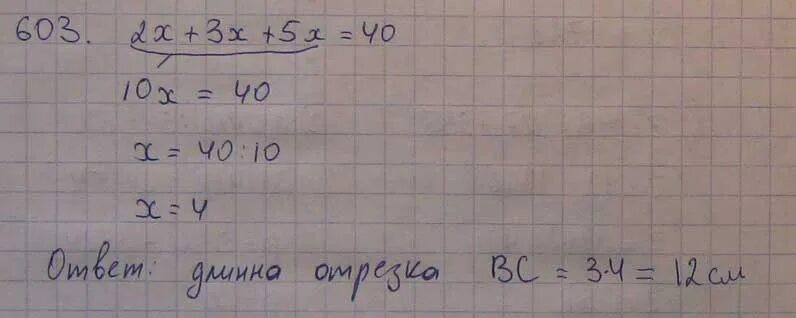 603. 2x + 3x + 5x = 40
10x = 40
x = 40:10
x = 4
Ответ: длинна отрезка BC = 3·4 = 12 см